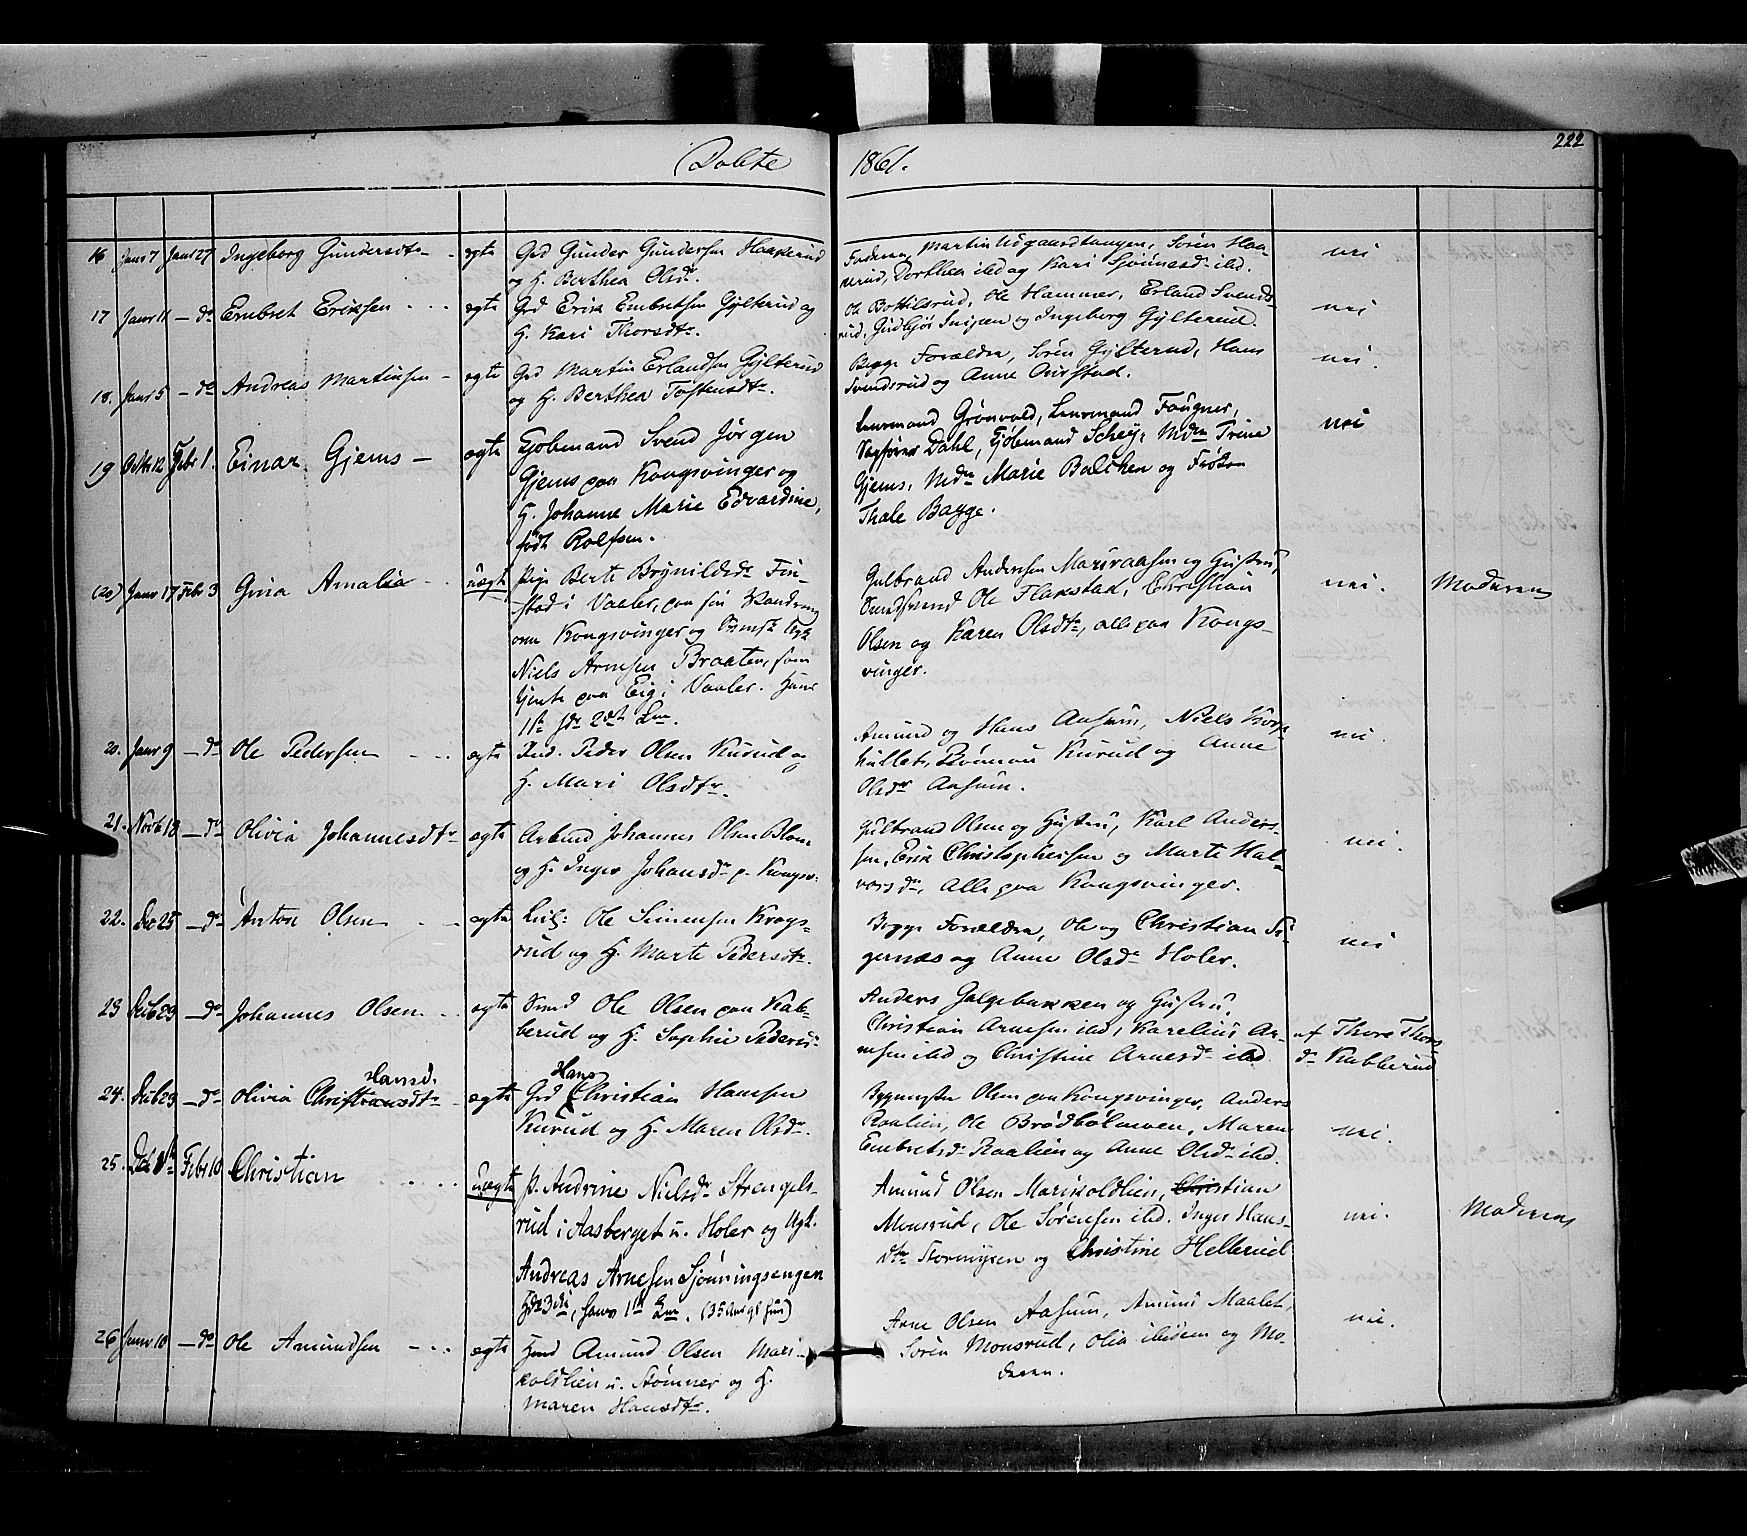 222
Døbte 1861.
16 Janr 7 Janr 27 Ingeborg Gundersdtr - ægte Grd Gunder Gundersen Haakerud
og H. Berthea Olsdr.
Faderen, Martin Udgaardtangen, Søren Haa-
kerud, Dorthea ibd og Kari Sjønnesdr ibd. nei
17 Janr 11 - do Embret Eriksen ... ægte Grd Erik Embretsen Gylterud og
H. Kari Thorsdtr.
Ole Bottilsrud, Ole Hammer, Erland Svends-
rud, Gudbjør Snipen og Ingeborg Gylterud. nei
18. Janr 5 - do Andreas Martinsen - ægte Grd Martin Erlandsen Gylterud
og H. Berthea Tostensdtr.
Begge Forældre, Søren Gylterud, Hans
Svendsrud og Anne Aurstad. nei.
19 Oktr 12 Febr 1. Einar Gjems - ægte Kjøbmand Svend Jörgen
Gjems paa Kongsvinger og
H. Johanne Marie Edvardine,
født Rolfsen.
Lensmand Grönvold, Lensmand Fougner,
Sagfører Dahl, Kjøbmand Schey, Mdm Trine
Gjems, Mdm Marie Balchen og Frøken
Thale Bagge. nei
(20) Janr 17 Febr 3 Gina Amalia - .. uægte Pige Berte Brynildsdr Fin-
stad i Vaaler, paa sin Vandring
om Kongsvinger og Svensk Ugk
Niels Arnesen Braaten, som
tjente paa Eig i Vaaler. Hans
1ste hds 2det Lm.
Gulbrand Andersen Mariraasen og Hustru,
Smedsvend Ole Flakstad, Christian
Olsen og Karen Olsdtr, alle paa Kongs-
vinger. nei. Moderen
20. Janr 9 - do Ole Pedersen - .. ægte Ind. Peder Olsen Kurud og
H. Mari Olsdtr.
Amund og Hans Aasum, Niels Korp-
hullet, Rönnau Kurud og Anne
Olsdr Aasum. nei.
21. Novb 18 - do Olivia Johannesdtr ægte Arbmd Johannes Olsen Blom
og H. Inger Johansdr p. Kongsv.
Gulbrand Olsen og Hustru, Karl Anders-
sen, Erik Christophersen og Marte Hal-
vorsdr, alle paa Kongsvinger. nei.
22. Dec 25 - do Anton Olsen - .. ægte Leil: Ole Simensen Krogs-
rud og H. Marte Pedersdtr.
Begge Forældre, Ole og Christian Si-
gernæs og Anne Olsdr Holer. nei
23 - do Johannes Olsen .. ægte Smed Ole Olsen paa Kab-
berud og H. Sophie Pedersdr
Anders Galgebakken og Hustru,
Christian Arnesen ibd, Karelius Ar-
nesen ibd og Christine Arnesdr ibd. af Thore Thors
dr Kabberud
24. - do Olivia Christiansdtr Hansd. - ægte Grd Hans Christian Hansen
Kurud og H. Maren Olsdr.
Bygmester Olsen paa Kongsvinger, Anders
Raalien, Ole Brødbølmoen, Maren
Embretsdr Raalien og Anne Olsdr ibd. nei.
25. Febr 10 Christian .... uægte P. Andrine Nielsdr Strengels-
rud i Aasberget u. Holer og Ugk.
Andreas Arnesen Sjønningsengen
Hds 3die, hans 1ste Lm.
Amund Olsen Marikoldlien, Christian
Monsrud, Ole Sørensen ibd. Inger Hans-
dtr Stormysen og Christine Hellerud nei. Moderen
26 Janr 10 - do Ole Amundsen - .. ægte Hmd Amund Olsen Mari-
koldlien u. Stømner og H.
Maren Hansdtr.
Arne Olsen Aasum, Amund Maalet,
Søren Monsrud, Olia ibidem og Mo-
deren. nei.